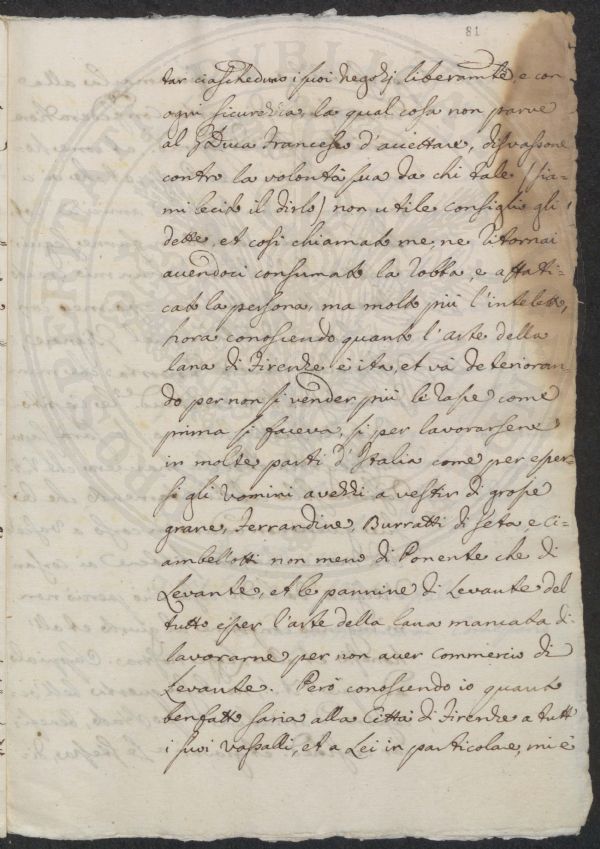 81
tar ciascheduno i suoi negozj liberamte, e con
ogni sicurezza, la qual cosa non parve
al G Duca Francesco d'accettare, disvassone
contro la volontà sua da chi tale (sia-
mi lecito il dirlo) non utile consiglio gli
dette, et cosi chiamato me ne ritornai
avendoci consumato la robba, e affati-
cato la persona, ma molto più l'intelletto,
hora conoscendo quanto l'arte della
lana di Firenze è ita, et và deterioran-
do per non si vender più le rasce come
prima si faceva, si per lavorarsene
in molte parti d'Italia come per esser-
si gli uomini avezzi a vestir di grosse
grane, Ferrandine, Burratti di seta e Ci-
ambellotti non meno di Ponente che di
Levante, et le pannine di Levante del
tutto esser l'arte della lana mancata di
lavorarne per non aver commercio di
Levante. Però conoscendo io quanto
benfatto saria alla Città di Firenze a tutti
i suoi vassalli, et a Lei in particolare, mi è